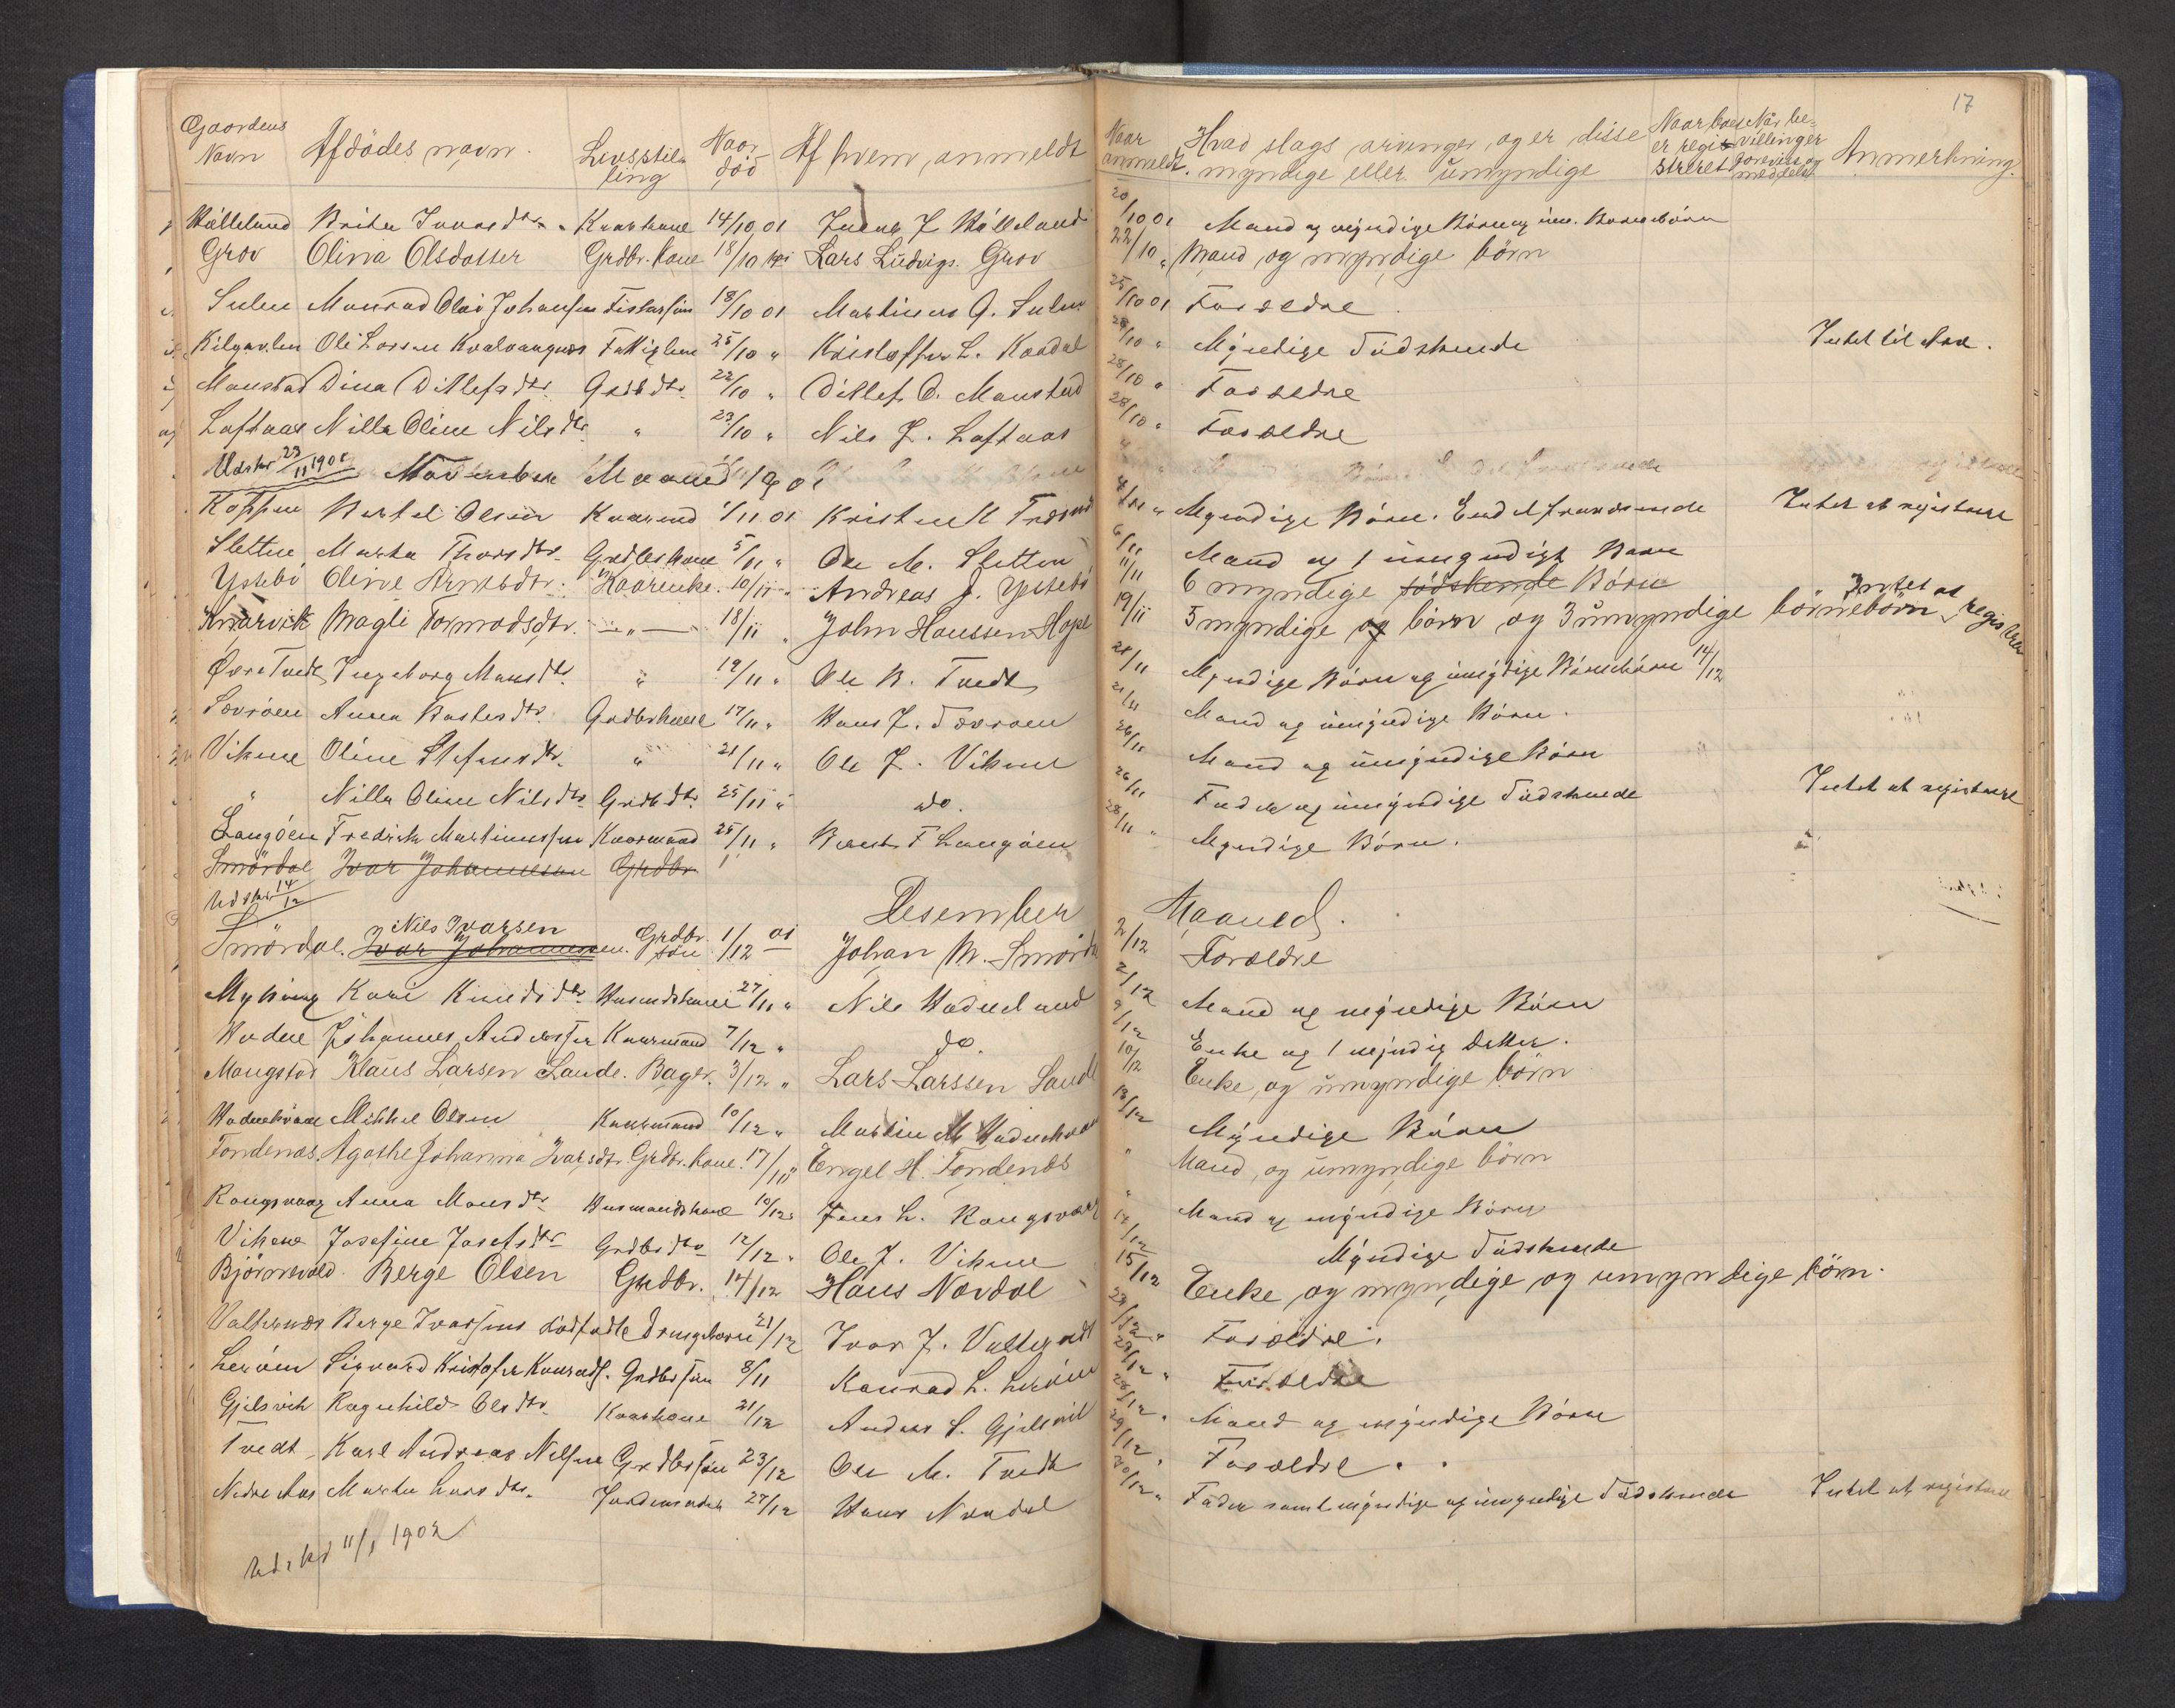 17
Gaardens Navn Afdödes navn. Livsstilling Naar död Af hvem anmeldt Naar anmeldt. Hvad slags arvinger, og er disse myndige eller umyndige Naar boet er registreret Når bevillinger meddelt Anmerkning.
Hölleland Brita Ivarsdtr. Kaarkone 14/10 01 J. Hölleland 20/10 01 Mand og myndige Börn og um. Barnebörn
Grov Olina Olsdatter Grdbr. kone 18/10 Lars Ludvigs. Grov 22/10 " Mand og myndige börn
Sulen Monrad Olai Johansen 18/10 01 Martinus A. Sulen 25/10 01 Forældre
Kilgavlen Ole Larsen Kvalvaagnes Fattiglem 25/10 " Kristoffer L. 28/10 " Myndige Södskende Intet til Arv.
Monstad Dina Ditlefsdtr. Grdbdtr. 22/10 " Ditlef O. Monstad 28/10 " Forældre
Loftaas Nilla Oline Nilsdtr. " 23/10 " Nils J. Loftaas 28/10 " Forældre
Udskr 23/11 1901 November Maaned 1901
Koppen Bertel Olsen Kaarmd 1/11 01 Kristen K 4/11 " Myndige Börn. En del fraværende Intet at registrere
Sletten Marta Thorsdtr. Grdbrskone 5/11 " Ole M. Sletten 6/11 Mand og 1 umyndigt Barn
Ystebö Oline Arnesdtr. Kaarenke. 10/11 " Andreas J. Ystebö 11/11 6 myndige södskende Börn
Knarvik Magli Tormodsdtr. — " — 18/11 " John Hanssen Hope 19/11 5 myndige og börn og 3 umyndige börnebörn Intet at registrere
Övre Tvedt Ingeborg Monsdtr. " 19/11 " Ole B. Tvedt 21/11 Myndige Börn og umyndige Börnebörn 14/12
Sævröen Anna Grdbrskone 17/11 " Hans J. Sævröen 21/11 Mand og umyndige Börn.
Vikene Oline Stefensdtr. " 21/11 " Ole J. Vikene 26/11 Mand og umyndige Börn
" Nilla Oline Nilsdtr. Grdbdtr. 25/11 " do. 26/11 Fader og umyndige Södskende Intet at registrere
Langöen Fredrik Martinussen Kaarmand 25/11 " Bernt F Langöen 28/11 " Myndige Börn.
Smördal Ivar Johannesen Grdbr
Udskr 14/12
Desember Maaned.
Smördal. Nils Ivarsen Ivar Johannessen. Grdbr. sön 1/12 01 Johan M. Smördal 2/12 Forældre
Myking Kari Knudsdtr. Husmdskone 27/11 " Nils Hodneland 2/12 Mand og myndige Börn
Hodne Johannes Anderssen Kaarmand 7/12 " do. 9/12 Enke og 1 myndig Datter.
Mongstad Klaus Larsen Sande. Bager. 3/12 " Lars Larssen Sande 10/12 Enke, og umyndige börn
Mikkel Olsen Kaarmand 10/12 " Martin M. 13/12 Myndige Börn
Tondenæs. Agathe Johanna Ivarsdtr. Grdbr. kone. 17/10 " Engel H. Tondenæs " Mand, og umyndige börn
Rongevaag Anna Monsdtr. Husmandskone 10/12 " Jens L. Rongevaag " Mand og myndige Börn
Vikene Josefine Josefsdtr. Grdbrdtr 12/12 " Ole J. Vikene 14/12 Myndige Södskende
Björnevold. Berge Olsen Grdbr. 14/12 Hans Nordal 15/12 Enke og myndige og umyndige börn.
Berge Ivarsens dödfödte Drengebarn 21/12 Ivar J. 23/12 " Forældre.
Leröen Sigvard Kristofer Konrads. Grdbrsön 8/11 Konrad L. Leröen 27/12 " Forældre
Gjelsvik Ragnhild Olsdtr. Kaarkone 21/12 Anders S. Gjelsvik 28/12 " Mand og myndige Börn
Tvedt Karl Andreas Nilsen Grdbrsön 23/12 Ole M. Tvedt 29/12 " Forældre.
Nedre Aas Marta Larsdtr. Jordemoder 27/12 Hans Nordal 30/12 " Fader samt myndige og umyndige Södskende Intet at registrere
Udskr 11/1 1902